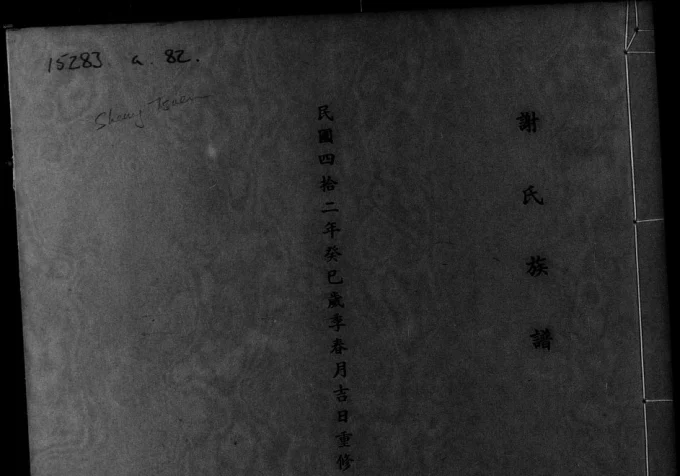 15283 a. 82.
謝氏族譜
民國四拾二年癸巳歲季春月吉日重修